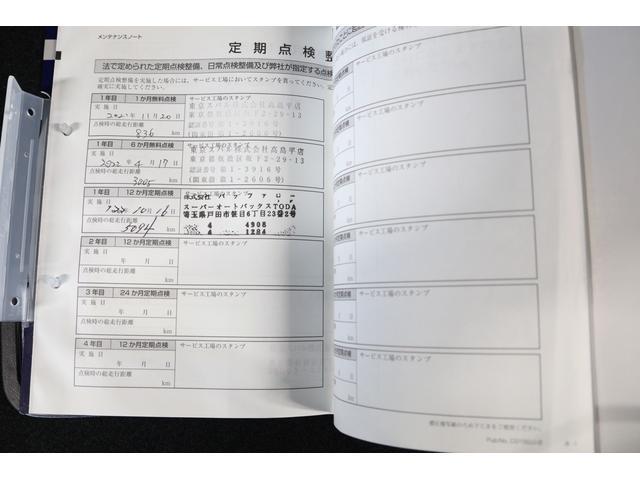 メンテナンスノート
定期点検整
法で定められた定期点検整備、日常点検整備及び弊社が指定する点検
定期点検整備を実施した場合には、サービス工場においてスタンプを貰ってください。
確実に実施してください。
1年目 1か月無料点検 サービス工場のスタンプ
実施日
2021年11月20日
点検時の総走行距離
836 km
東京スバル株式会社高島平店
東京都板橋区坂下2-29-13
認証番号第1-3916号
(関東指第1-2606号)
1年目 6か月無料点検 サービス工場のスタンプ
実施日
2022年4月17日
点検時の総走行距離
3005 km
東京スバル株式会社高島平店
東京都板橋区坂下2-29-13
認証番号第1-3916号
(関東指第1-2606号)
1年目 12か月定期点検 サービス工場のスタンプ
実施日
年10月16日
点検時の総走行距離
5094 km
株式会社バッファロー
スーパーオートバックスTODA
埼玉県戸田市笹目6丁目23番2号
4 4908
4 1284
2年目 12か月定期点検 サービス工場のスタンプ
実施日
年 月 日
点検時の総走行距離
km
3年目 24か月定期点検 サービス工場のスタンプ
実施日
年 月 日
点検時の総走行距離
km
4年目 12か月定期点検 サービス工場のスタンプ
実施日
年 月 日
点検時の総走行距離
km
サービス工場のスタンプ
サービス工場のスタンプ
サービス工場のスタンプ
サービス工場のスタンプ
サービス工場のスタンプ
サービス工場のスタンプ